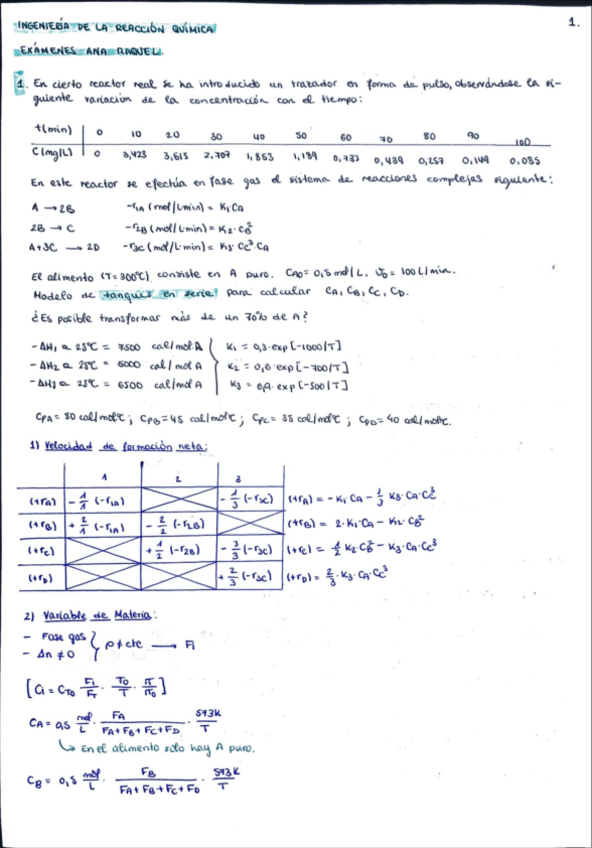 1.
INGENIERÍA DE LA REACCIÓN QUÍMICA
EXÁMENES ANA RAQUEL.
1. En cierto reactor real se ha introducido un trazador en forma de pulso, observándose la si-
guiente variación de la concentración con el tiempo:
t(min) 0 10 20 30 40 50 60 70 80 90 100
C(mg/L) 0 3,423 3,615 2,707 1,853 1,189 0,733 0,439 0,257 0,149 0,085
En este reactor se efectúa en fase gas el sistema de reacciones complejas siguiente:
A → 2B -r1A (mol/L·min) = K1·CA
2B → C -r2B (mol/L·min) = K2·CB²
A+3C → 2D -r3C (mol/L·min) = K3·CC³ CA
El alimento (T=300ºC) consiste en A puro. CA0= 0,5 mol/L, υ0= 100 L/min.
Modelo de tanques en serie para calcular CA, CB, CC, CD.
¿Es posible transformar más de un 70% de A?
-ΔH1 a 25ºC = 7500 cal/mol A K1 = 0,3·exp[-1000/T]
-ΔH2 a 25ºC = 6000 cal/mol A K2 = exp[-700/T]
-ΔH3 a 25ºC = 6500 cal/mol A K3 = exp[-500/T]
CPA = 80 cal/molºC ; CPB = 45 cal/molºC ; CPC = 35 cal/molºC ; CPD = 40 cal/molºC.
1) Velocidad de formación neta:
1 2 3
(+rA) - 1/1 (-r1A) - 1/3 (-r3C) (+rA) = -K1·CA - 1/3 K3·CA·CC³
(+rB) + 2/1 (-r1A) - 2/2 (-r2B) (+rB) = 2·K1·CA - K2·CB²
(+rC) + 1/2 (-r2B) - 3/3 (-r3C) (+rC) = 1/2 K2·CB² - K3·CA·CC³
(+rD) + 2/3 (-r3C) (+rD) = 2/3·K3·CA·CC³
2) Variable de Materia:
- Fase gas
- Δn ≠ 0 } ρ ≠ cte → Fi
[Ci = CT0 Fi/FT · T0/T · π/π0]
CA = 0,5 mol/L · FA/(FA+FB+FC+FD) · 573K/T
↳ En el alimento sólo hay A puro.
CB = 0,5 mol/L · FB/(FA+FB+FC+FD) · 573K/T